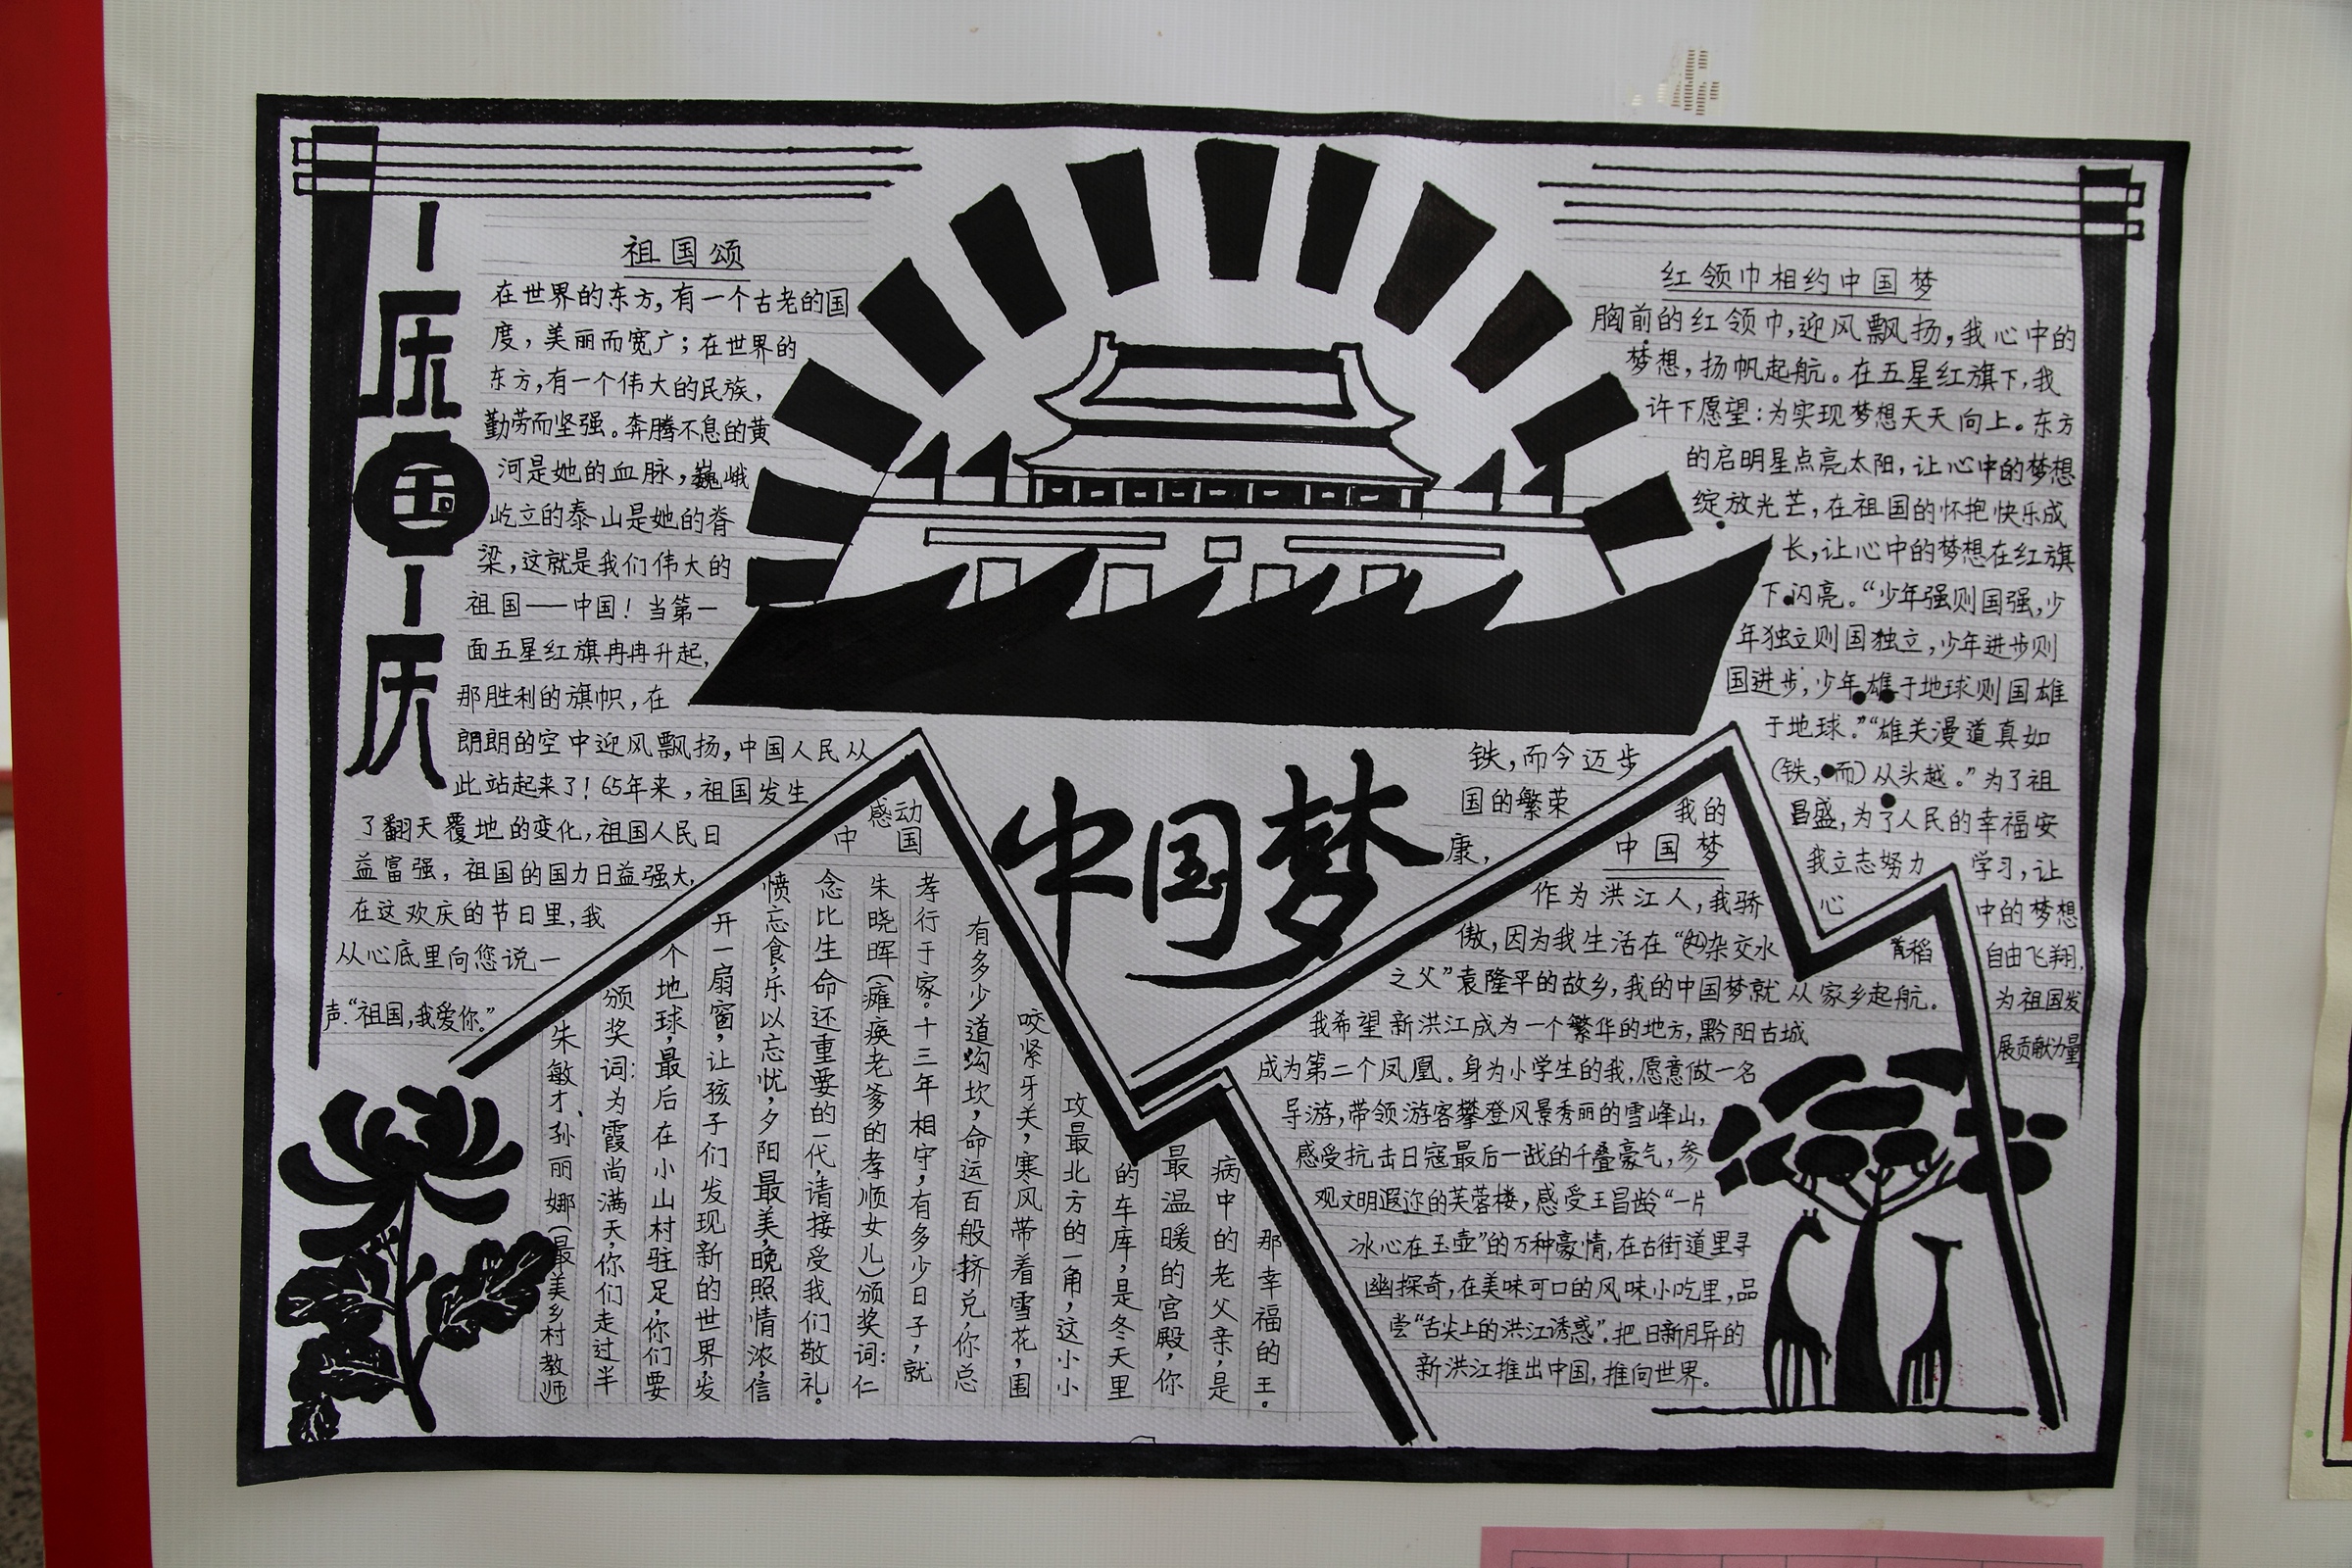 庆国庆
祖国颂
在世界的东方,有一个古老的国
度,美丽而宽广;在世界的
东方,有一个伟大的民族,
勤劳而坚强。奔腾不息的黄
河是她的血脉,巍峨
屹立的泰山是她的脊
梁,这就是我们伟大的
祖国——中国!当第一
面五星红旗冉冉升起,
那胜利的旗帜,在
朗朗的空中迎风飘扬,中国人民从
此站起来了!65年来,祖国发生
了翻天覆地的变化,祖国人民日
益富强,祖国的国力日益强大,
在这欢庆的节日里,我
从心底里向您说一
声:“祖国,我爱你。”
中国梦
红领巾相约中国梦
胸前的红领巾,迎风飘扬,我心中的
梦想,扬帆起航。在五星红旗下,我
许下愿望:为实现梦想天天向上。东方
的启明星点亮太阳,让心中的梦想
绽放光芒,在祖国的怀抱快乐成
长,让心中的梦想在红旗
下闪亮。“少年强则国强,少
年独立则国独立,少年进步则
国进步,少年雄于地球则国雄
于地球。”“雄关漫道真如
铁,而今迈步(铁,而)从头越。”为了祖
国的繁荣昌盛,为了人民的幸福安
康,我立志努力学习,让
心中的梦想
自由飞翔,
为祖国发
展贡献力量
感动
中国
朱敏才、孙丽娜(最美乡村教师
颁奖词:为霞尚满天,你们走过半
个地球,最后在小山村驻足,你们要
开一扇窗,让孩子们发现新的世界,发
愤忘食,乐以忘忧,夕阳最美,晚照情浓,信
念比生命还重要的一代,请接受我们敬礼。
朱晓晖(瘫痪老爹的孝顺女儿)颁奖词:仁
孝行于家。十三年相守,有多少日子,就
有多少道沟坎,命运百般挤兑,你总
咬紧牙关,寒风带着雪花,围
攻最北方的一角,这小小
的车库,是冬天里
最温暖的宫殿,你
病中的老父亲,是
那幸福的王。
我的
中国梦
作为洪江人,我骄
傲,因为我生活在“杂交水稻
之父”袁隆平的故乡,我的中国梦就从家乡起航。
我希望新洪江成为一个繁华的地方,黔阳古城
成为第二个凤凰。身为小学生的我,愿意做一名
导游,带领游客攀登风景秀丽的雪峰山,
感受抗击日寇最后一战的千叠豪气,参
观文明遐迩的芙蓉楼,感受王昌龄“一片
冰心在玉壶”的万种豪情,在古街道里寻
幽探奇,在美味可口的风味小吃里,品
尝“舌尖上的洪江诱惑”.把日新月异的
新洪江推出中国,推向世界。